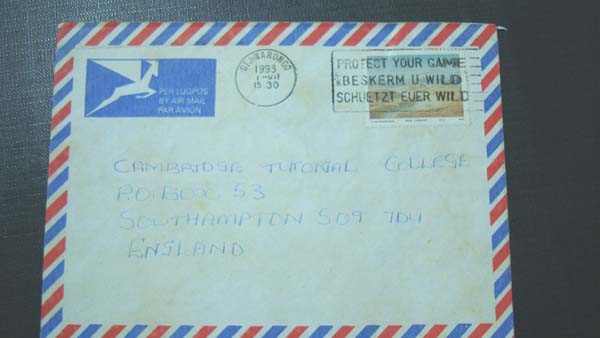 PER LUGPOS
BY AIR MAIL
PAR AVION
OTJIWARONGO
1993
1-VII
15.30
PROTECT YOUR GAME
BESKERM U WILD
SCHUETZT EUER WILD
CAMBRIDGE TUTORIAL COLLEGE
P.O. BOX 53
SOUTHAMPTON SO9 7DU
ENGLAND